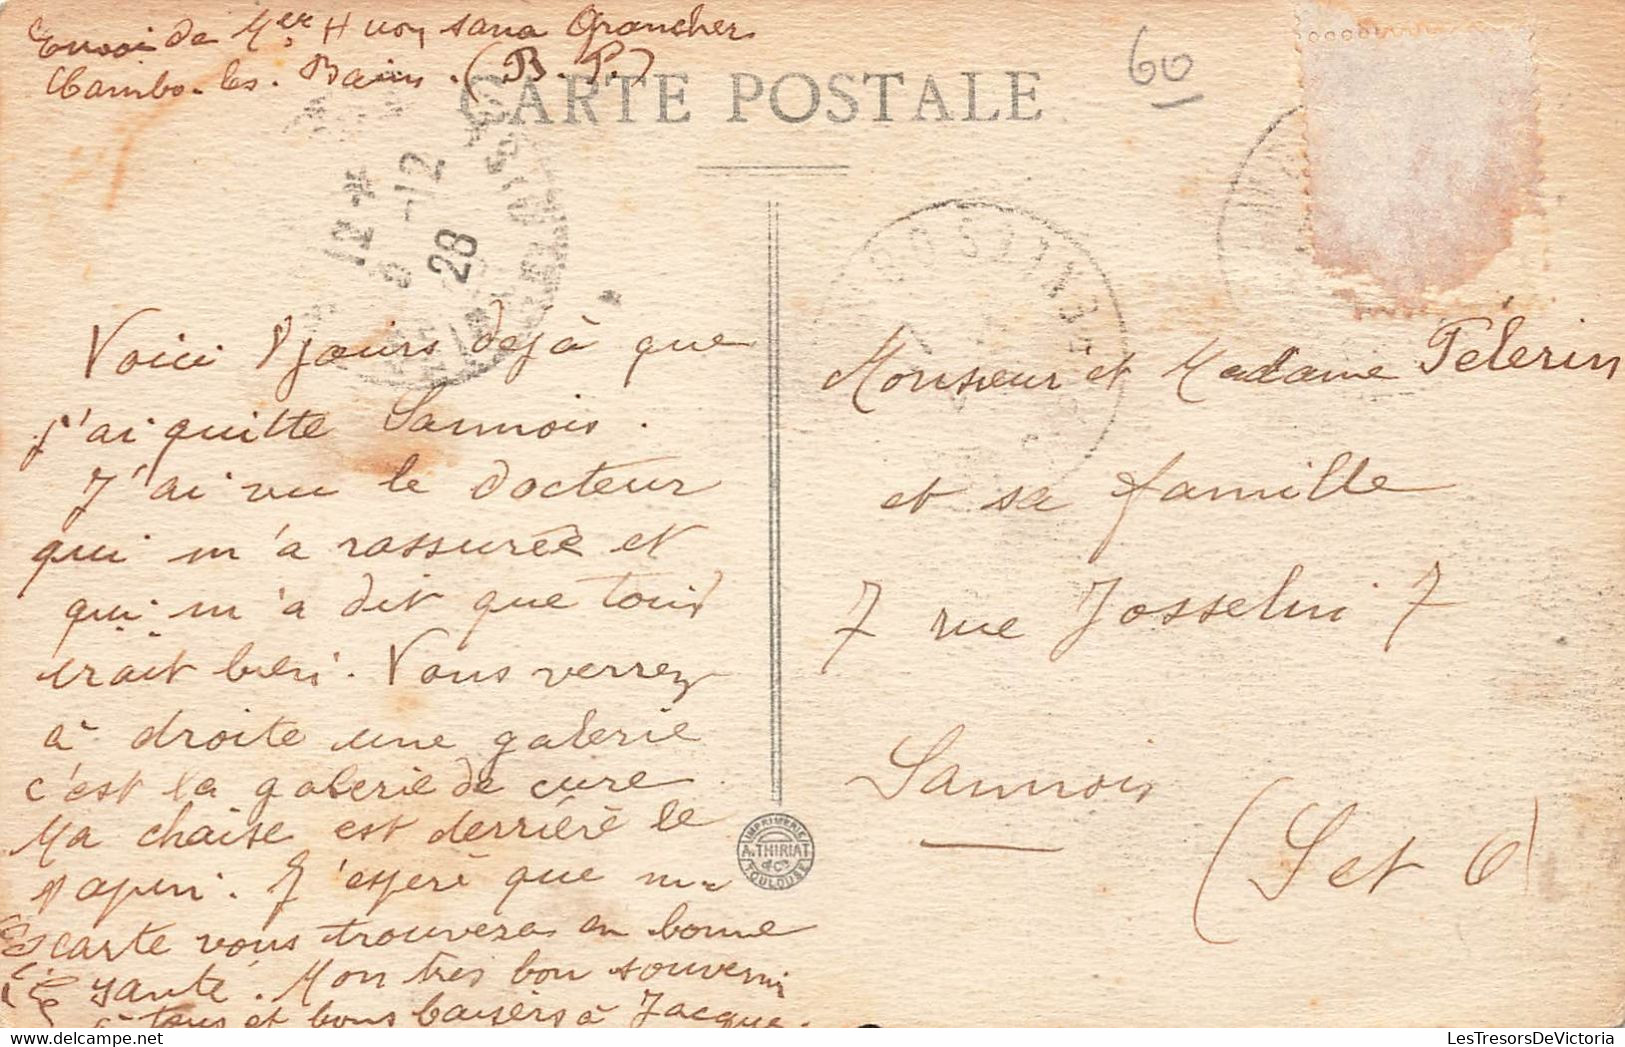 Envoi de Mer Huon sana Grancher
Cambo-les-Bains. (B.P.)
CARTE POSTALE
60
12-*
-12
28
Voici 8 jours dejà que
j'ai quitte Sannois.
J'ai vu le docteur
qui m'a rassurée et
qui m'a dit que tout
irait bien. Vous verrez
à droite une galerie
c'est la galerie de cure
Ma chaise est derrière le
sapin. J'espère que ma
carte vous trouvera en bonne
santé. Mon très bon souvenir
à tous et bons baisers à Jacques.
Monsieur et Madame Pélerin
et sa famille
7 rue Josselin 7
Sannois
(S et O)
IMPRIMERIE
A. THIRIAT
& Cie
TOULOUSE
LesTresorsDeVictoria